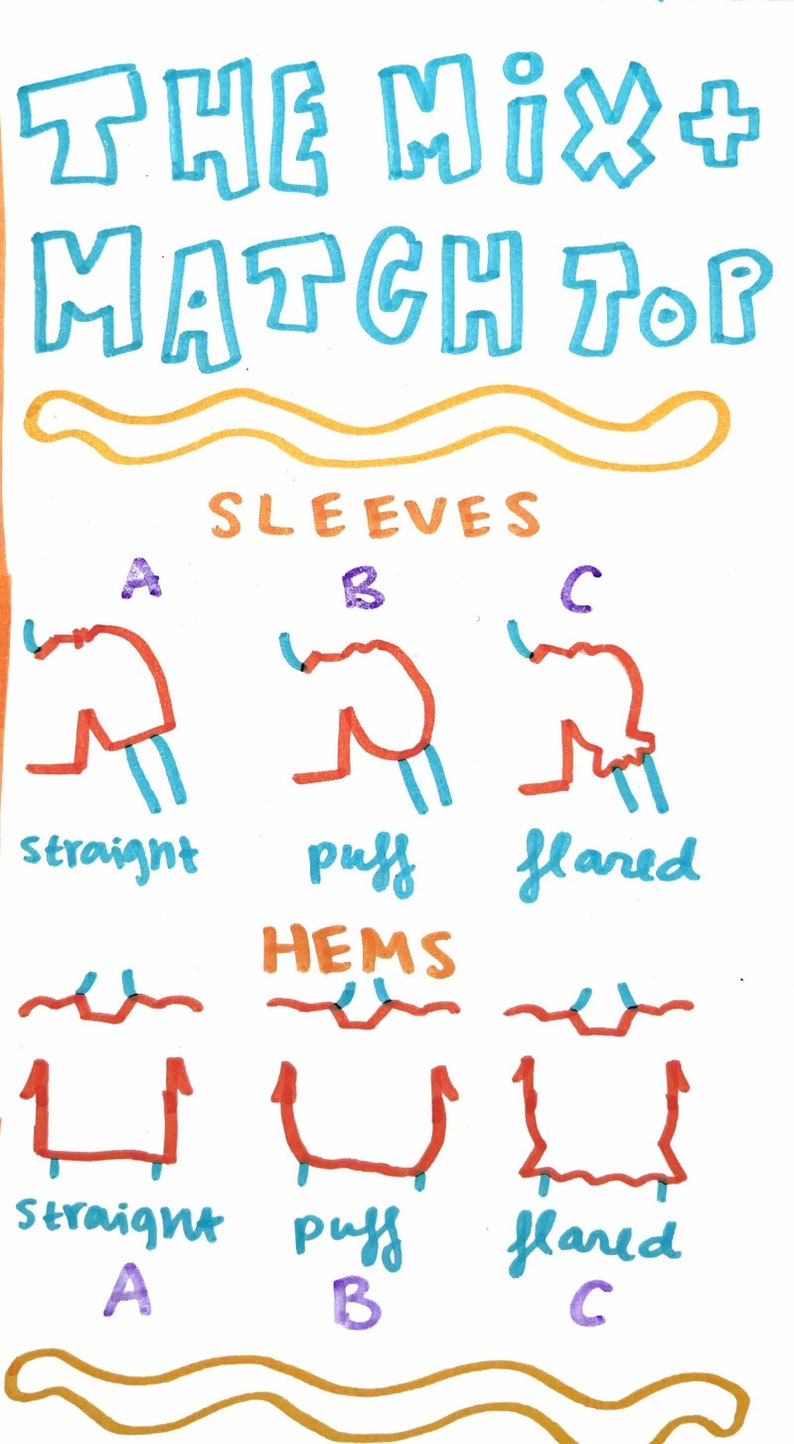 THE MiX +
MATCH ToP
SLEEVES
A B C
straight puff flared
HEMS
straight puff flared
A B C